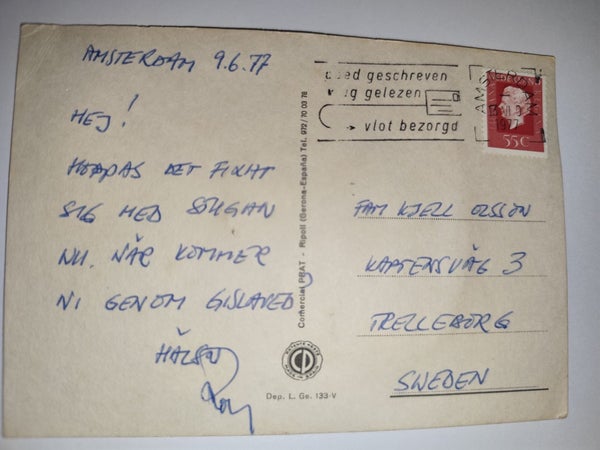 AMSTERDAM 9.6.77
HEJ!
HOPPAS DET FIXAT
SIG MED STUGAN
NU. NÄR KOMMER
NI GENOM GISLAVED?
HÄLSN
Comercial PRAT - Ripoll (Gerona-España) Tel. 972/70 00 78
Dep. L. Ge. 133-V
goed geschreven
vlug gelezen
vlot bezorgd
AMSTERDAM
1977
NEDERLAND
55c
FAM KJELL OLSSON
KAPTENSVÄG 3
TRELLEBORG
SWEDEN